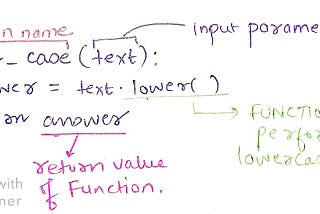 n name
input parame
_ case (text):
wer = text. lower( )
rn answer
FUNCTIO
perfor
lowercas
return value
of Function.
with
ner